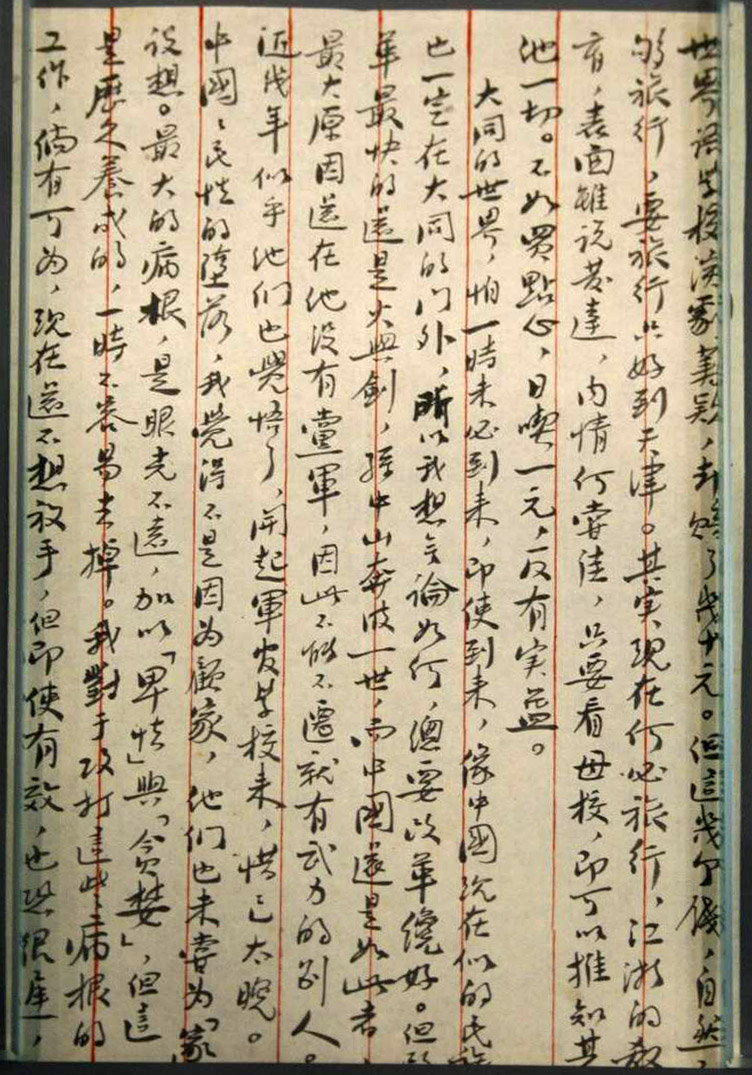 世界語学校演劇籌欵，却賠了幾十元。但這幾个錢，自然
够旅行，要旅行只好到天津。其实现在何必旅行，江浙的教
育，表面雖説發達，内情何嘗佳，只要看母校，即可以推知其
他一切。不如買點心，日喫一元，反有实益。
大同的世界，怕一時未必到来，即使到来，像中國现在似的民族
也一定在大同的门外，所以我想無論如何，總要改革纔好。但改
革最快的還是火與劍，孫中山奔波一世，而中國還是如此者，
最大原因還在他没有黨軍，因此不能不遷就有武力的别人。
近幾年似乎他们也覺悟了，開起軍官学校来，惜已太晚。
中國〻民性的墮落，我覺得不是因为顧家，他们也未嘗为「家
設想。最大的病根，是眼光不遠，加以「卑怯」與「貪婪」，但這
是歷久養成的，一時不容易去掉。我對于攻打這些病根的
工作，倘有可为，现在還不想放手，但即使有效，也恐很遲，